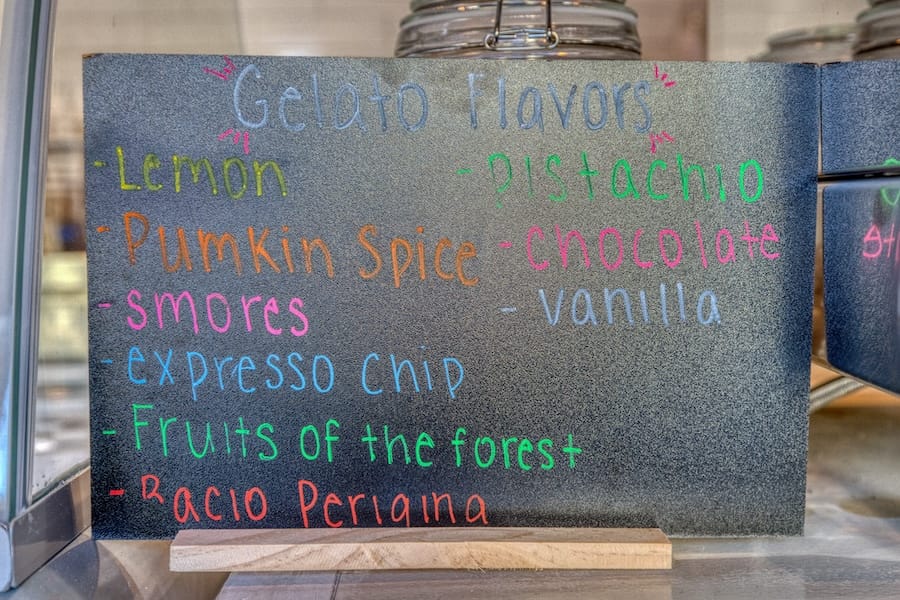 Gelato Flavors
- Lemon
- Pumkin Spice
- smores
- expresso chip
- Fruits of the forest
- Bacio Perigina
- Pistachio
- chocolate
- vanilla